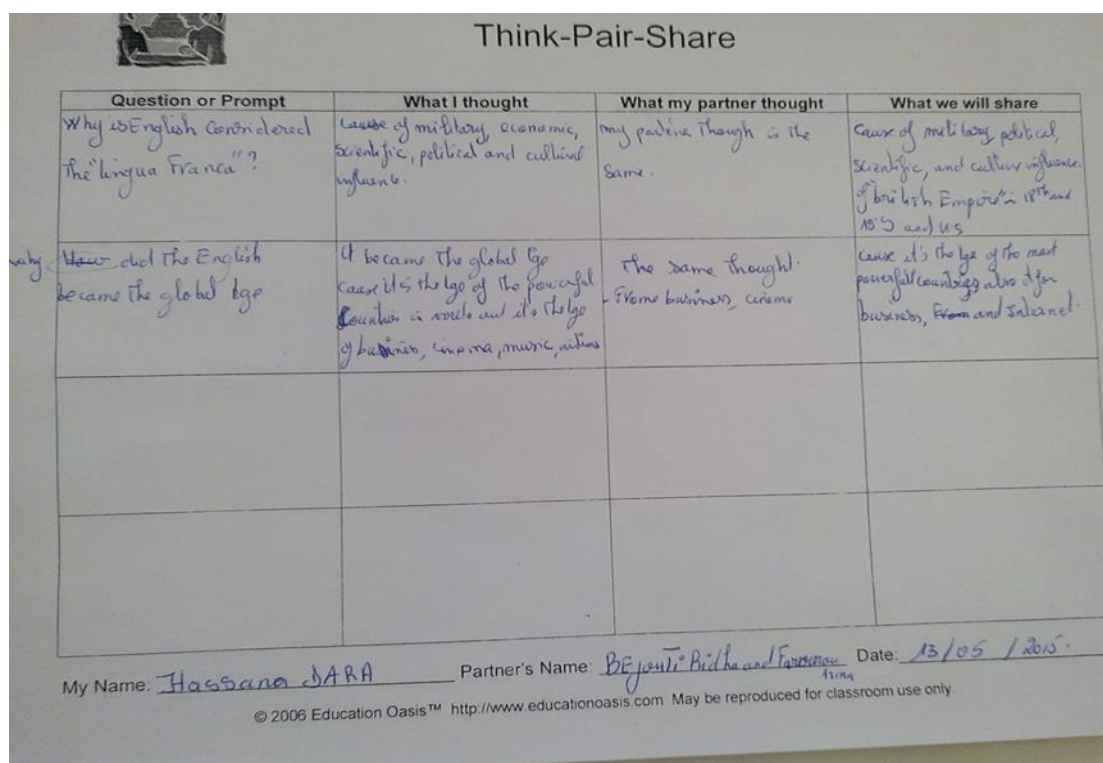 Think-Pair-Share
Question or Prompt
What I thought
What my partner thought
What we will share
Why is English Considered
The "lingua Franca"?
Cause of military, economic,
Scientific, political and
my Though is the
Same.
Cause of military political,
Scientific, and influence
of "british Empire" in 18th and
19 S and US
why How did The English
became The global lge
it became The global lge
cause it's the lge of the powerful
Countries in and it's the lge
of business, cinema, music,
The same thought.
- Frome business, cinema
cause it's the lge of the most
powerfull countries also it for
business, From and Internet.
My Name: Hassana DARA
Partner's Name: BEjaoui Ridha and
Date: 13/05/2015.
© 2006 Education Oasis™ http://www.educationoasis.com May be reproduced for classroom use only.